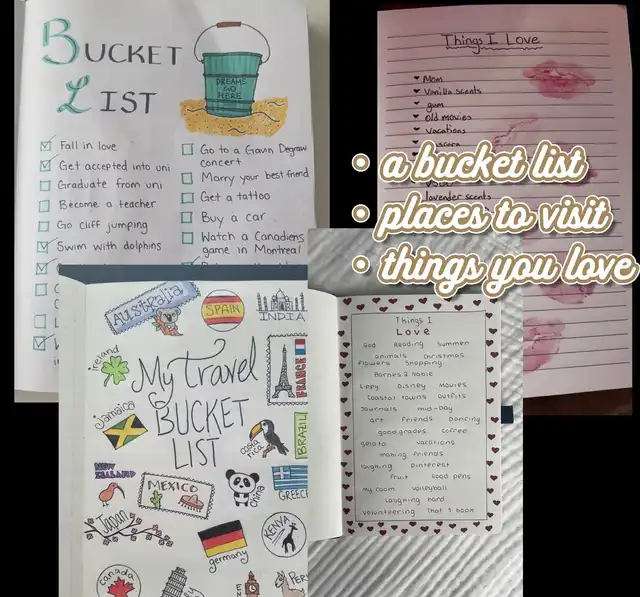 BUCKET
LIST
DREAMS
GO
HERE
Fall in love
Get accepted into uni
Graduate from uni
Become a teacher
Go cliff jumping
Swim with dolphins
Go to a Gavin Degraw
concert
Marry your best friend
Get a tattoo
Buy a car
Watch a Canadiens
game in Montreal
Things I Love
Mom
Vanilla scents
gum
old movies
vacations
lavender scents
• a bucket list
• places to visit
• things you love
AUSTRALIA
SPAIN
INDIA
ireland
My Travel
BUCKET
LIST
FRANCE
jamaica
costa
rica
BRAZIL
NEW
ZEALAND
MEXICO
china
GREECE
Japan
germany
KENYA
canada
Things I
Love
God Reading Summer
animals Christmas
flowers Shopping
Barnes & Noble
Lippy Disney Movies
Coastal towns outfits
Journals mid-day
art friends Dancing
good grades coffee
gelato vacations
making friends
laughing pinterest
fruit good pens
my room volleyball
laughing hard
volunteering That 1 book